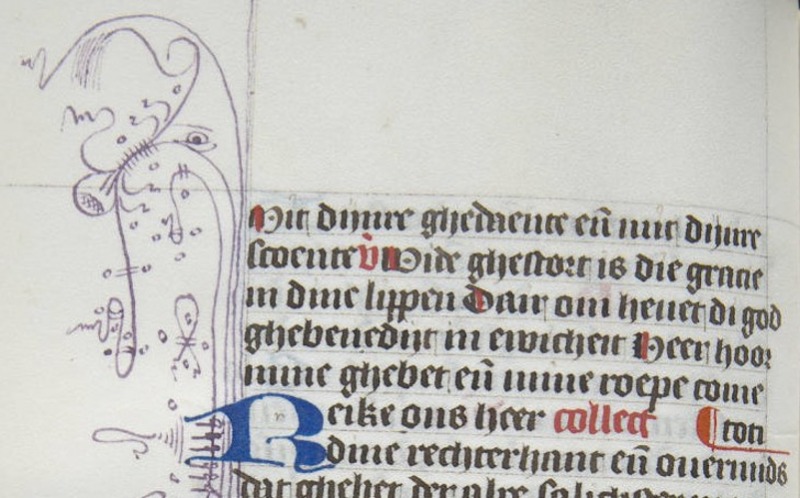 Mit dijnre ghedaente eñ mit dijnre
scoente v̄ Wide ghestort is die gracie
in dine lippen Dair om hevet di god
ghebenedijt in ewicheit Heer hoor
mine ghebet eñ mine roepe come
Reike ons heer collect ¶ toti
dine rechterhant eñ overmids
dat ghebet der